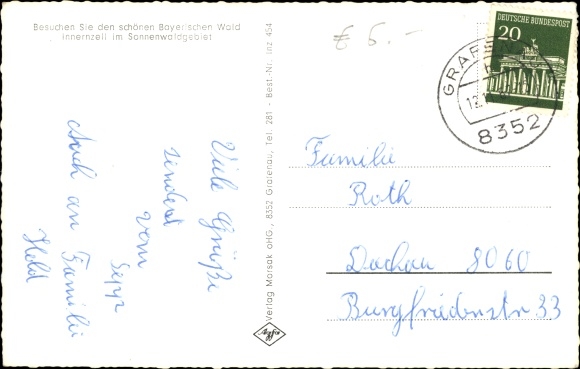 Besuchen Sie den schönen Bayerischen Wald
Innernzell im Sonnenwaldgebiet
€ 5.-
DEUTSCHE BUNDESPOST
20
GRAFEN
8352
Viele Grüße
sendet
vom
Sepp
Auch an Familie
Held
Verlag Morsak oHG., 8352 Grafenau, Tel. 281 - Best.-Nr. Inz 454
Agfa
Familie
Roth
Dachau 8060
Burgfriedenstr 33